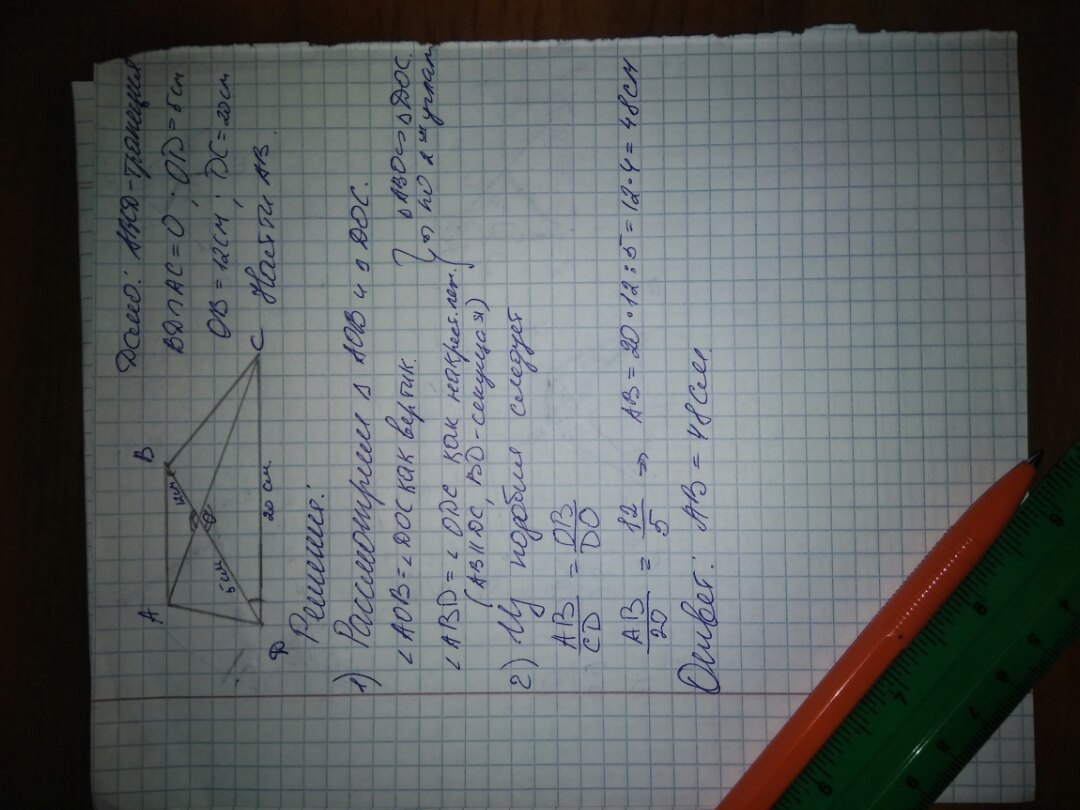 Дано: ABCD-трапеция
BD∩AC=O; OD=5см
OB=12см; DC=20см
Найти AB.
A
B
12см
O
5см
D
20 см.
C
Решение:
1) Рассмотрим ∆ AOB и ∆ DOC.
∠AOB=∠DOC как вертик.
∠ABD=∠ODC как накрест.леж.
(AB||DC, BD-секущая)
} ⇒ ∆ABO∾∆DOC.
по 2м углам
2) Из подобия следует
AB/CD = OB/DO
AB/20 = 12/5 ⇒ AB=20·12:5=12·4=48см
Ответ: AB=48см.